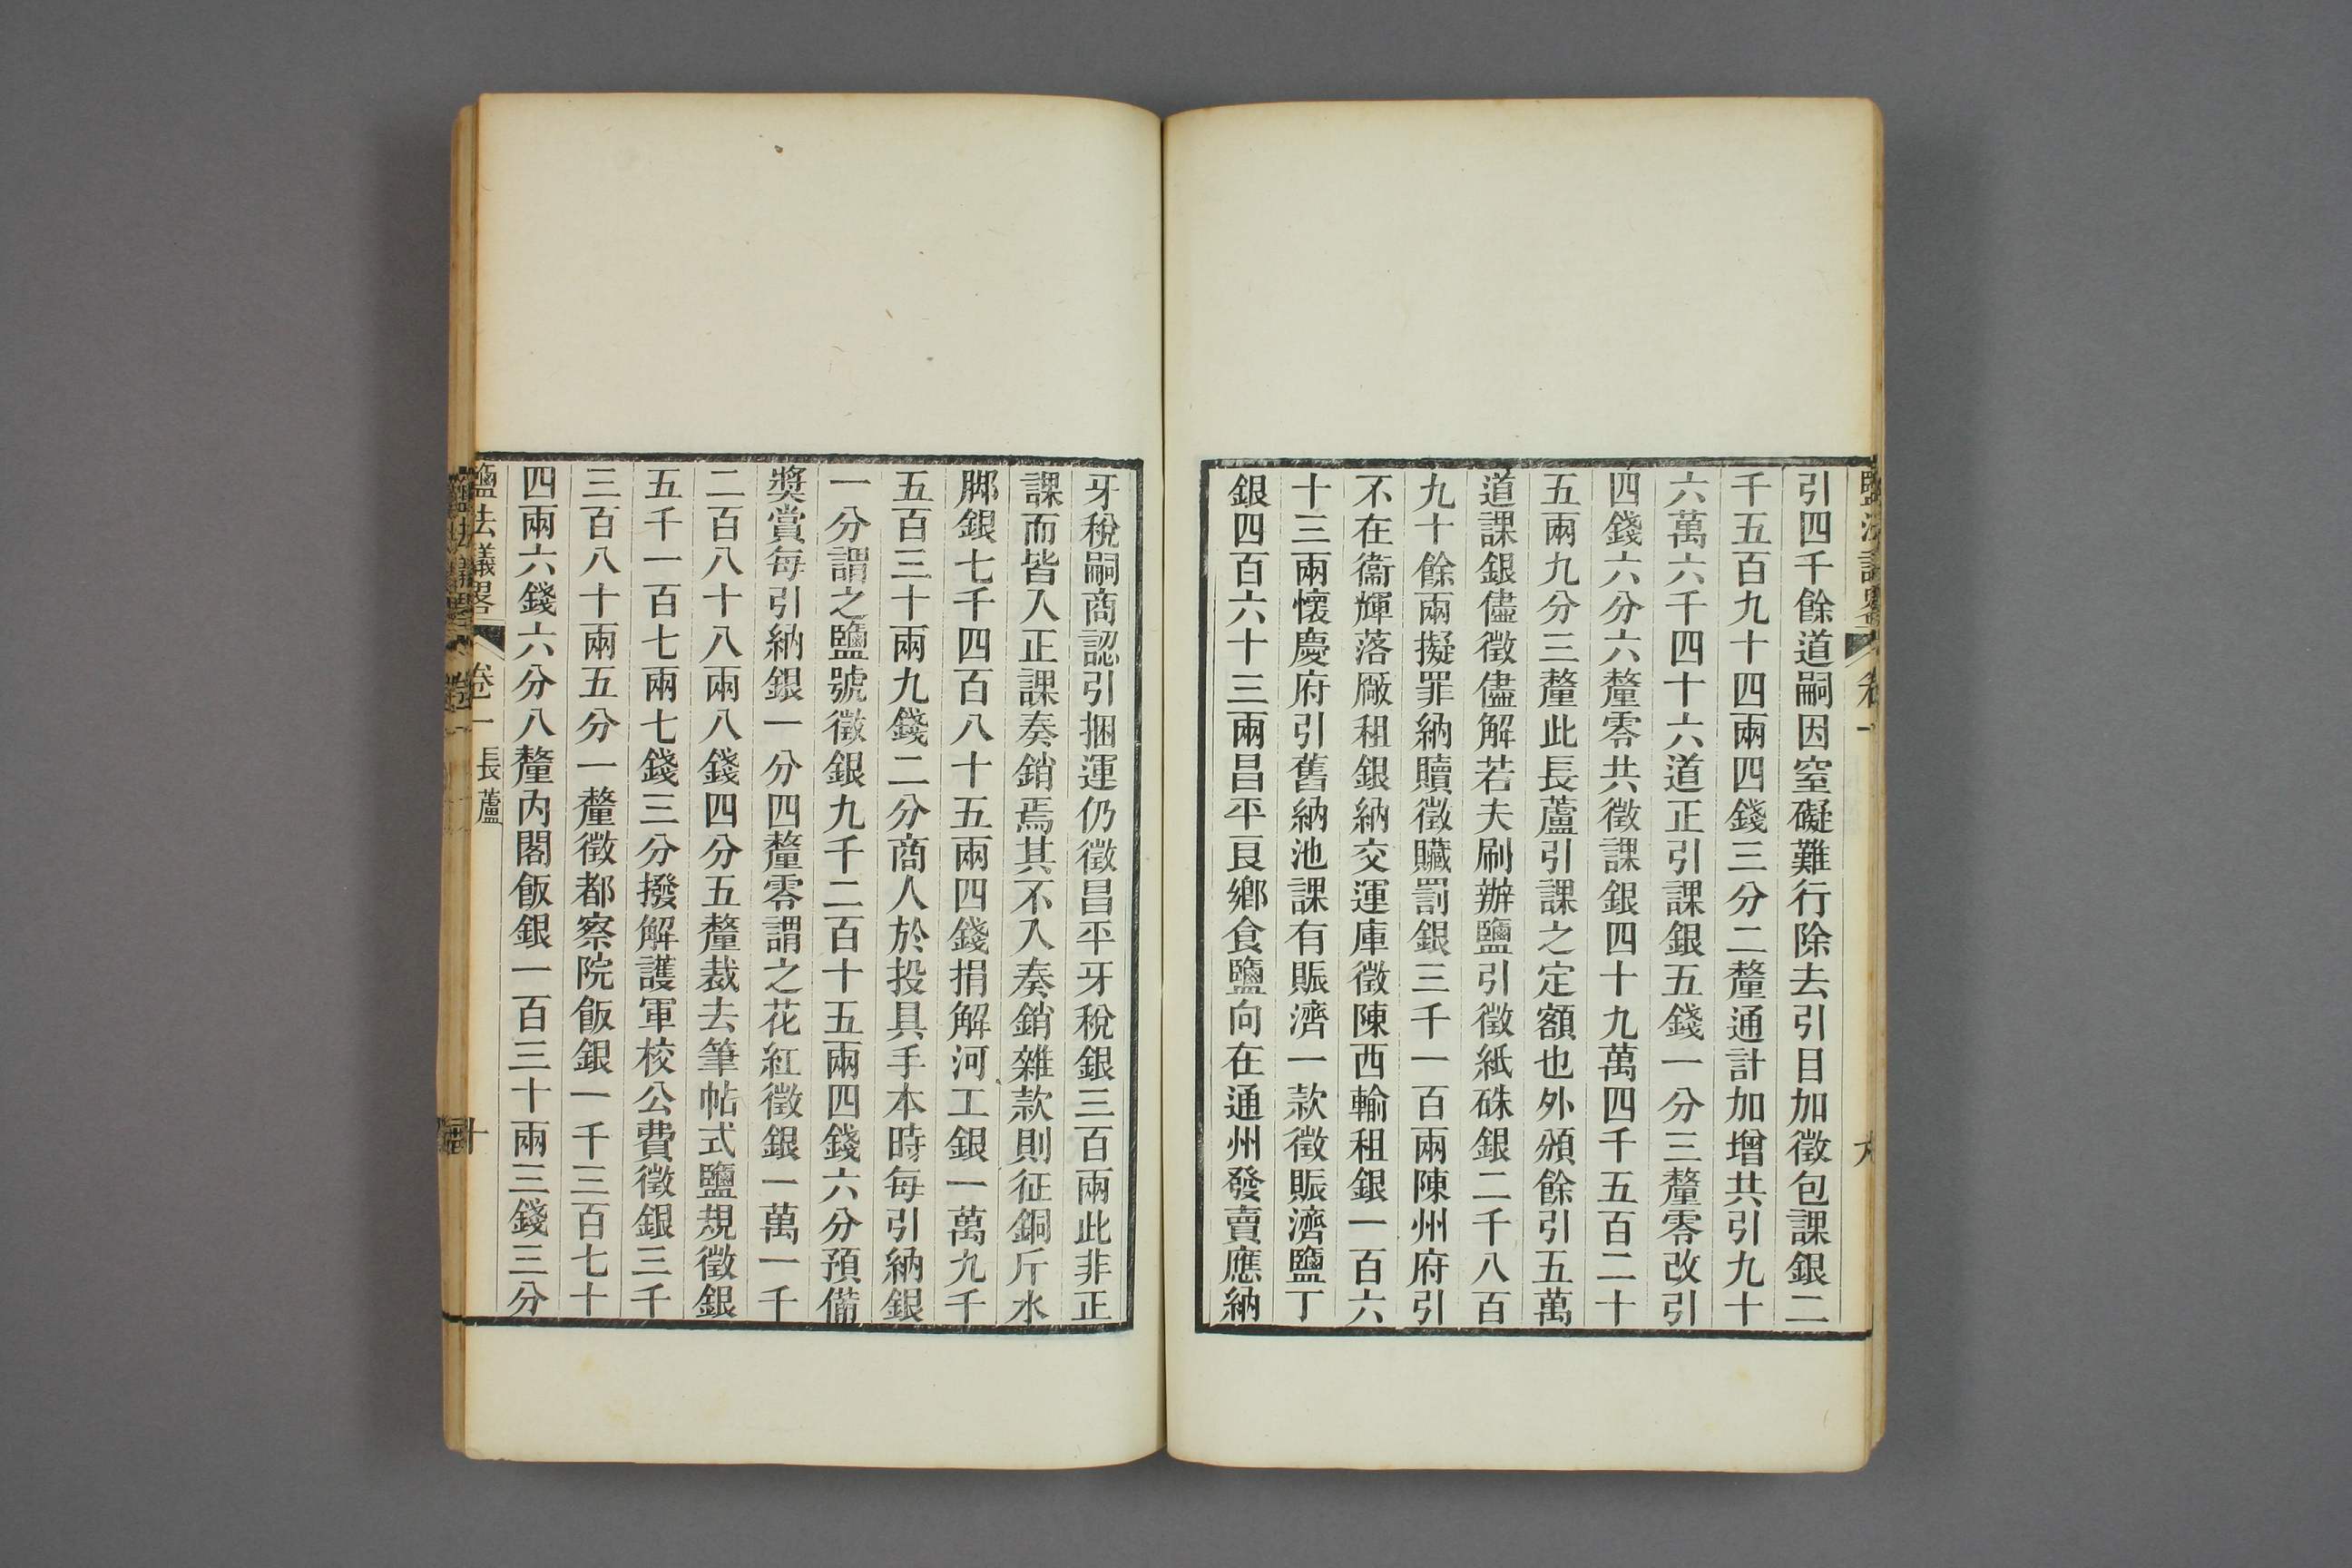 引四千餘道嗣因窒礙難行除去引目加徵包課銀二
千五百九十四兩四錢三分二釐通計加增共引九十
六萬六千四十六道正引課銀五錢一分三釐零改引
四錢六分六釐零共徵課銀四十九萬四千五百二十
五兩九分三釐此長蘆引課之定額也外頒餘引五萬
道課銀儘徵儘解若夫刷辦鹽引徵紙硃銀二千八百
九十餘兩擬罪納贖徵贓罰銀三千一百兩陳州府引
不在衞輝落厰租銀納交運庫徵陳西輸租銀一百六
十三兩懷慶府引舊納池課有賑濟一款徵賑濟鹽丁
銀四百六十三兩昌平良鄉食鹽向在通州發賣應納
牙稅嗣商認引捆運仍徵昌平牙稅銀三百兩此非正
課而皆入正課奏銷焉其不入奏銷雜款則征銅斤水
脚銀七千四百八十五兩四錢捐解河工銀一萬九千
五百三十兩九錢二分商人於投具手本時每引納銀
一分謂之鹽號徵銀九千二百十五兩四錢六分預備
獎賞每引納銀一分四釐零謂之花紅徵銀一萬一千
二百八十八兩八錢四分五釐裁去筆帖式鹽規徵銀
五千一百七兩七錢三分撥解護軍校公費徵銀三千
三百八十兩五分一釐徵都察院飯銀一千三百七十
四兩六錢六分八釐內閣飯銀一百三十兩三錢三分
鹽法議略 卷一 長蘆 十